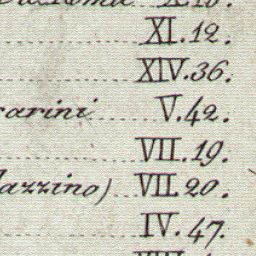 XI.12.
XIV.36.
arini V.42.
VII.19.
azzino) VII.20.
IV.47.